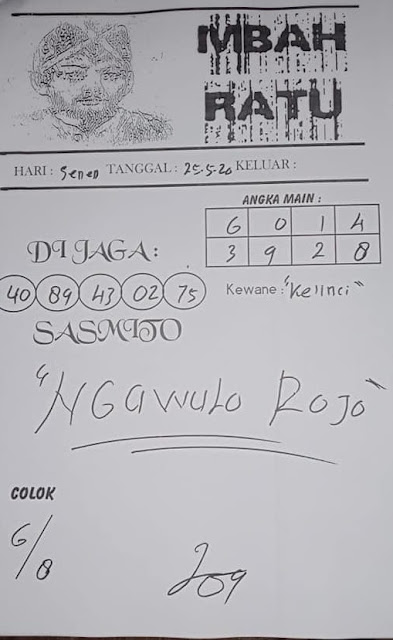 MBAH
RATU
HARI : Senen TANGGAL : 25.5.20 KELUAR :
ANGKA MAIN :
6 0 1 4
3 9 2 8
DI JAGA :
40 89 43 02 75
Kewane : "Kelinci"
SASMITO
"NGAWULO ROJO"
COLOK
6/8
209